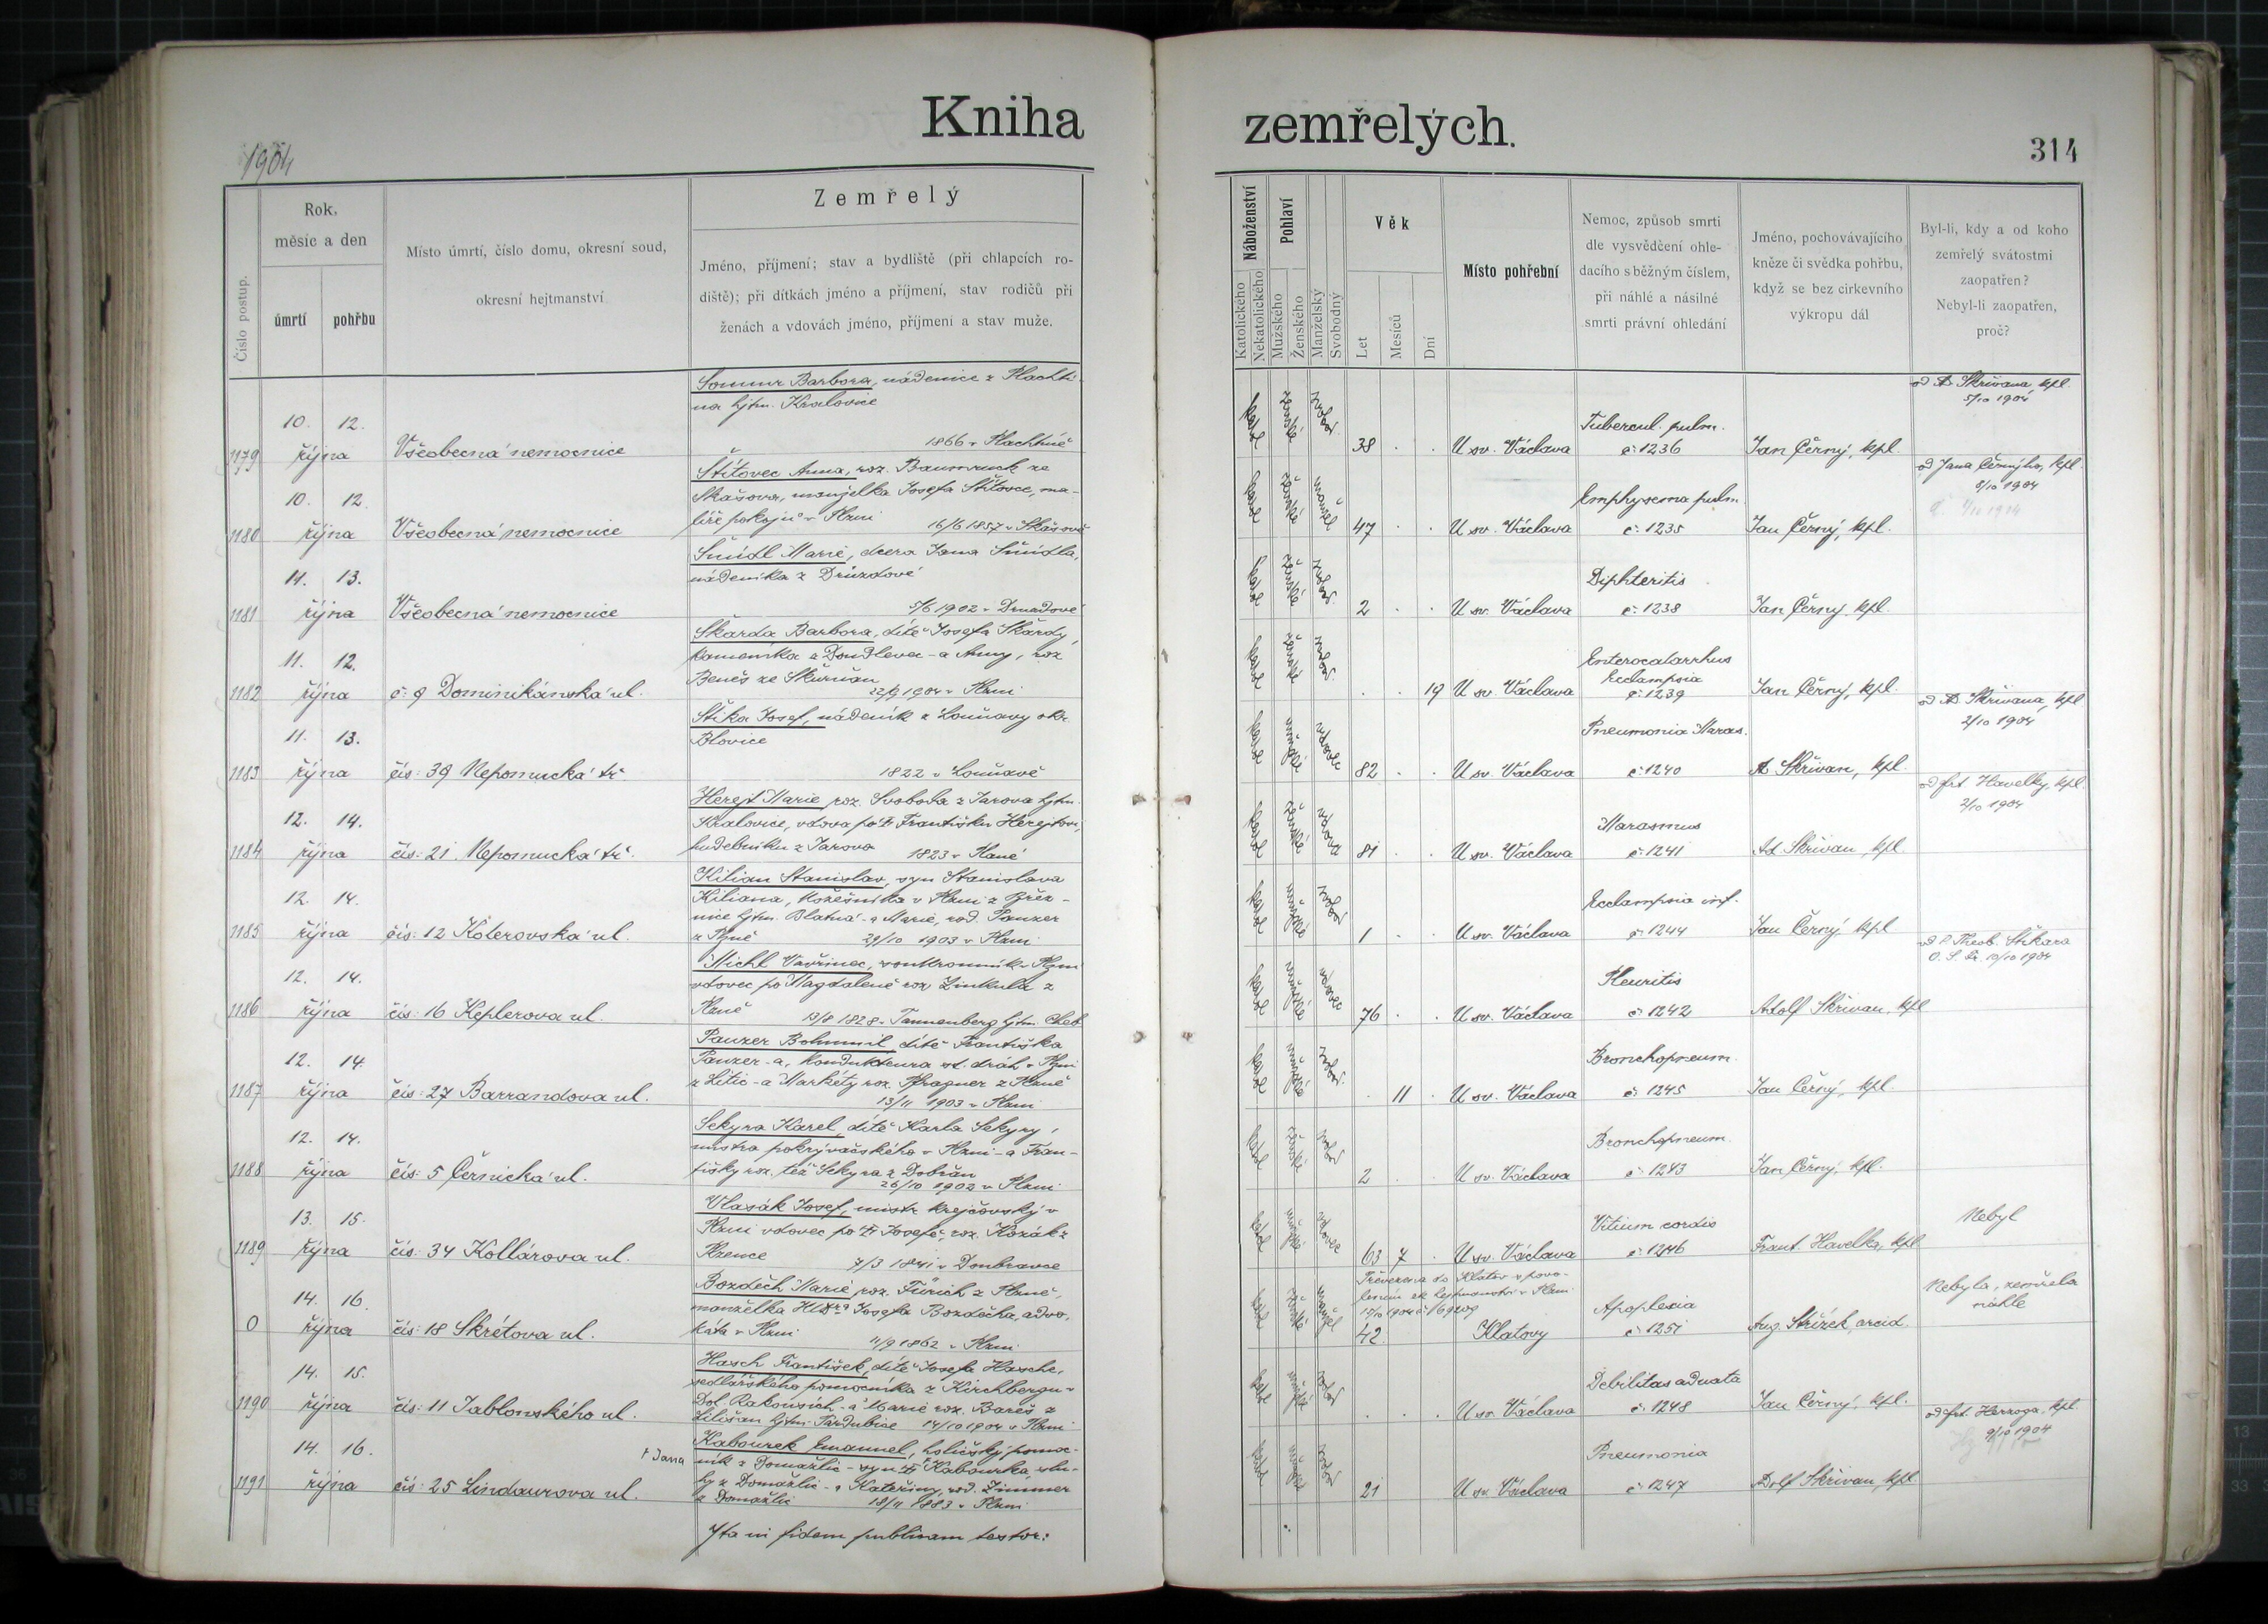 Kniha zemřelých.
1904
314
Číslo postup.
Rok, měsíc a den
úmrtí
pohřbu
Místo úmrtí, číslo domu, okresní soud,
okresní hejtmanství
Zemřelý
Jméno, příjmení; stav a bydliště (při chlapcích ro-
diště); při dítkách jméno a příjmení, stav rodičů při
ženách a vdovách jméno, příjmení a stav muže.
Náboženství
Katolického
Nekatolického
Pohlaví
Mužského
Ženského
Manželský
Svobodný
Věk
Let
Mesíců
Dní
Místo pohřební
Nemoc, způsob smrti
dle vysvědčení ohle-
dacího s běžným číslem,
při náhlé a násilné
smrti právní ohledání
Jméno, pochovávajícího
kněze či svědka pohřbu,
když se bez cirkevního
výkropu dál
Byl-li, kdy a od koho
zemřelý svátostmi
zaopatřen?
Nebyl-li zaopatřen,
proč?
1179
10. 12.
října
Všeobecná nemocnice
Sommr Barbora, nádenice z Plachti-
na hjtm. Kralovice
1866 v Plachtině
38
U sv. Václava
Tubercul. pulm.
č. 1236
Jan Černý, kpl.
od A. Skřivana, kpl.
5/10 1904
1180
10. 12.
října
Všeobecná nemocnice
Štítovec Anna, roz. Baumruck ze
Skašova, manželka Josefa Štítovce, ma-
líře pokojů v Plzni
16/6 1857 v Skašově
47
U sv. Václava
Emphysema pulm.
č. 1235
Jan Černý, kpl.
od Jana Černýho, kpl.
8/10 1904
1181
11. 13.
října
Všeobecná nemocnice
Šmídl Marie, dcera Jana Šmídla,
nádeníka z Drůzdové
5/6 1902 v
2
U sv. Václava
Diphteritis
č. 1238
Jan Černý, kpl.
1182
11. 12.
října
č. 9 Dominikánská ul.
Škarda Barbora, dítě Josefa Škardy,
kameníka z Doudlevec - a Anny, roz.
Beneš ze Skurňan
22/9 1904 v Plzni
19
U sv. Václava
Enterocatarrhus
Ecclampsia
č. 1239
Jan Černý, kpl.
1183
11. 13.
října
čís. 39 Nepomucká tř.
Štika Josef, nádeník z Louňavy okr.
Blovice
1822 v Louňavě
82
U sv. Václava
Pneumonia Maras.
č. 1240
A. Skřivan, kpl.
od A. Skřivana, kpl.
2/10 1904
1184
12. 14.
října
čís. 21. Nepomucká tř.
Herejt Marie, roz. Svoboda z Jarova hjtm.
Kralovice, vdova po † Františku Herejtovi,
hudebníku z Jarova
1823 v Plané
81
U sv. Václava
Marasmus
č. 1241
Ad. Skřivan, kpl.
od frt. Havelky, kpl.
2/10 1904
1185
12. 14.
října
čís. 12 Koterovská ul.
Kilian Stanislav, syn Stanislava
Kiliana, kožešníka v Plzni z Břez-
nice hjtm. Blatná - a Marie, rod. Panzer
z Plzně
29/10 1903 v Plzni
1
U sv. Václava
Ecclampsia inf.
č. 1244
Jan Černý, kpl.
1186
12. 14.
října
čís. 16 Keplerova ul.
Michl Vavřinec, soukromník v Plzni
vdovec po Magdaleně roz. Zinkula z
Plzně
13/8 1828 v Tannenberg hjtm. Cheb
76
U sv. Václava
Pleuritis
č. 1242
Adolf Skřivan, kpl.
od P. Theob. Štikara
O. S. Fr. 10/10 1904
1187
12. 14.
října
čís. 27 Barrandova ul.
Panzer Bohumil, dítě Františka
Panzer-a, kondukteura st. drah v Plzni
z Litic - a Markéty roz. Pfragner z Plzně
13/11 1903 v Plzni
11
U sv. Václava
Bronchopneum.
č. 1245
Jan Černý, kpl.
1188
12. 14.
října
čís. 5 Černická ul.
Sekyra Karel, dítě Karla Sekyry,
mistra pokrývačského v Plzni - a Fran-
tišky roz. též Sekyra z Dobřan
26/10 1902 v Plzni
2
U sv. Václava
Bronchopneum.
č. 1243
Jan Černý, kpl.
1189
13. 15.
října
čís. 34 Kollárova ul.
Vlasák Josef, mistr krejčovský v
Plzni vdovec po † Josefě, roz. Kozák z
Plzence
7/3 1841 v Doubravce
63 7
U sv. Václava
Vitium cordis
č. 1246
Frant. Havelka, kpl.
Nebyl
0
14. 16.
října
čís. 18 Skrétova ul.
Bozděch Marie, roz. Fürich z Plzně,
manželka JUDra Josefa Bozděcha, advo-
káta v Plzni
11/9 1862 v Plzni
Převezena do Klatov s povo-
lením ck. hejtmanství v Plzni
42
Klatovy
Apoplexia
č. 1251
Aug. Střížek, arcid.
Nebyla, zemřela
náhle
1190
14. 15.
října
čís. 11 Jablonského ul.
Hasch František, dítě Josefa Hasche,
sedlářského pomocníka z Kirchbergu v
Dol. Rakousích - a Marie roz. Bareš z
hjtm. Pardubice 14/10 1904 v Plzni
U sv. Václava
Debilitas adnata
č. 1248
Jan Černý, kpl.
1191
14. 16.
října
čís. 25 Lindaurova ul.
† Jana
Kabourek Emanuel, holičský pomoc-
ník z Domažlic - syn † Kabourka, slu-
hy z Domažlic - a Kateřiny, rod. Zimmer
z Domažlic
18/11 1883 v Plzni
21
U sv. Václava
Pneumonia
č. 1247
Adolf Skřivan, kpl.
od frt. Herzoga, kpl.
9/10 1904
Ita in fidem publicam testor: